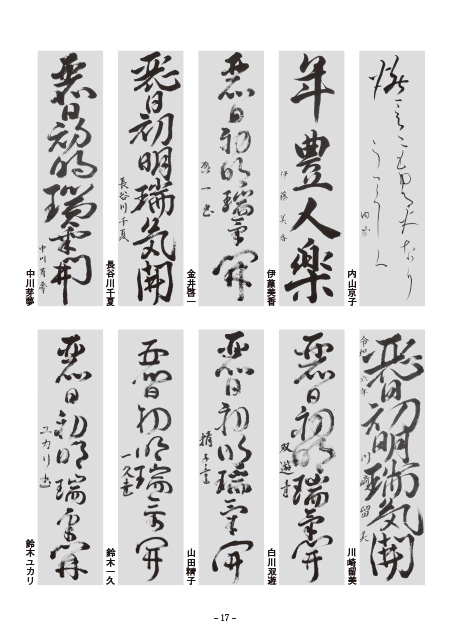 内山京子
年豊人楽
伊藤美香
伊藤美香
麗日初明瑞気開
啓一書
金井啓一
麗日初明瑞気開
長谷川千夏
長谷川千夏
麗日初明瑞気開
中川芽夢
中川芽夢
令和六年
麗日初明瑞気開
川崎留美
川崎留美
麗日初明瑞気開
双遊書
白川双遊
麗日初明瑞気開
精子書
山田精子
麗日初明瑞気開
一久書
鈴木一久
麗日初明瑞気開
ユカリ書
鈴木ユカリ
– 17 –